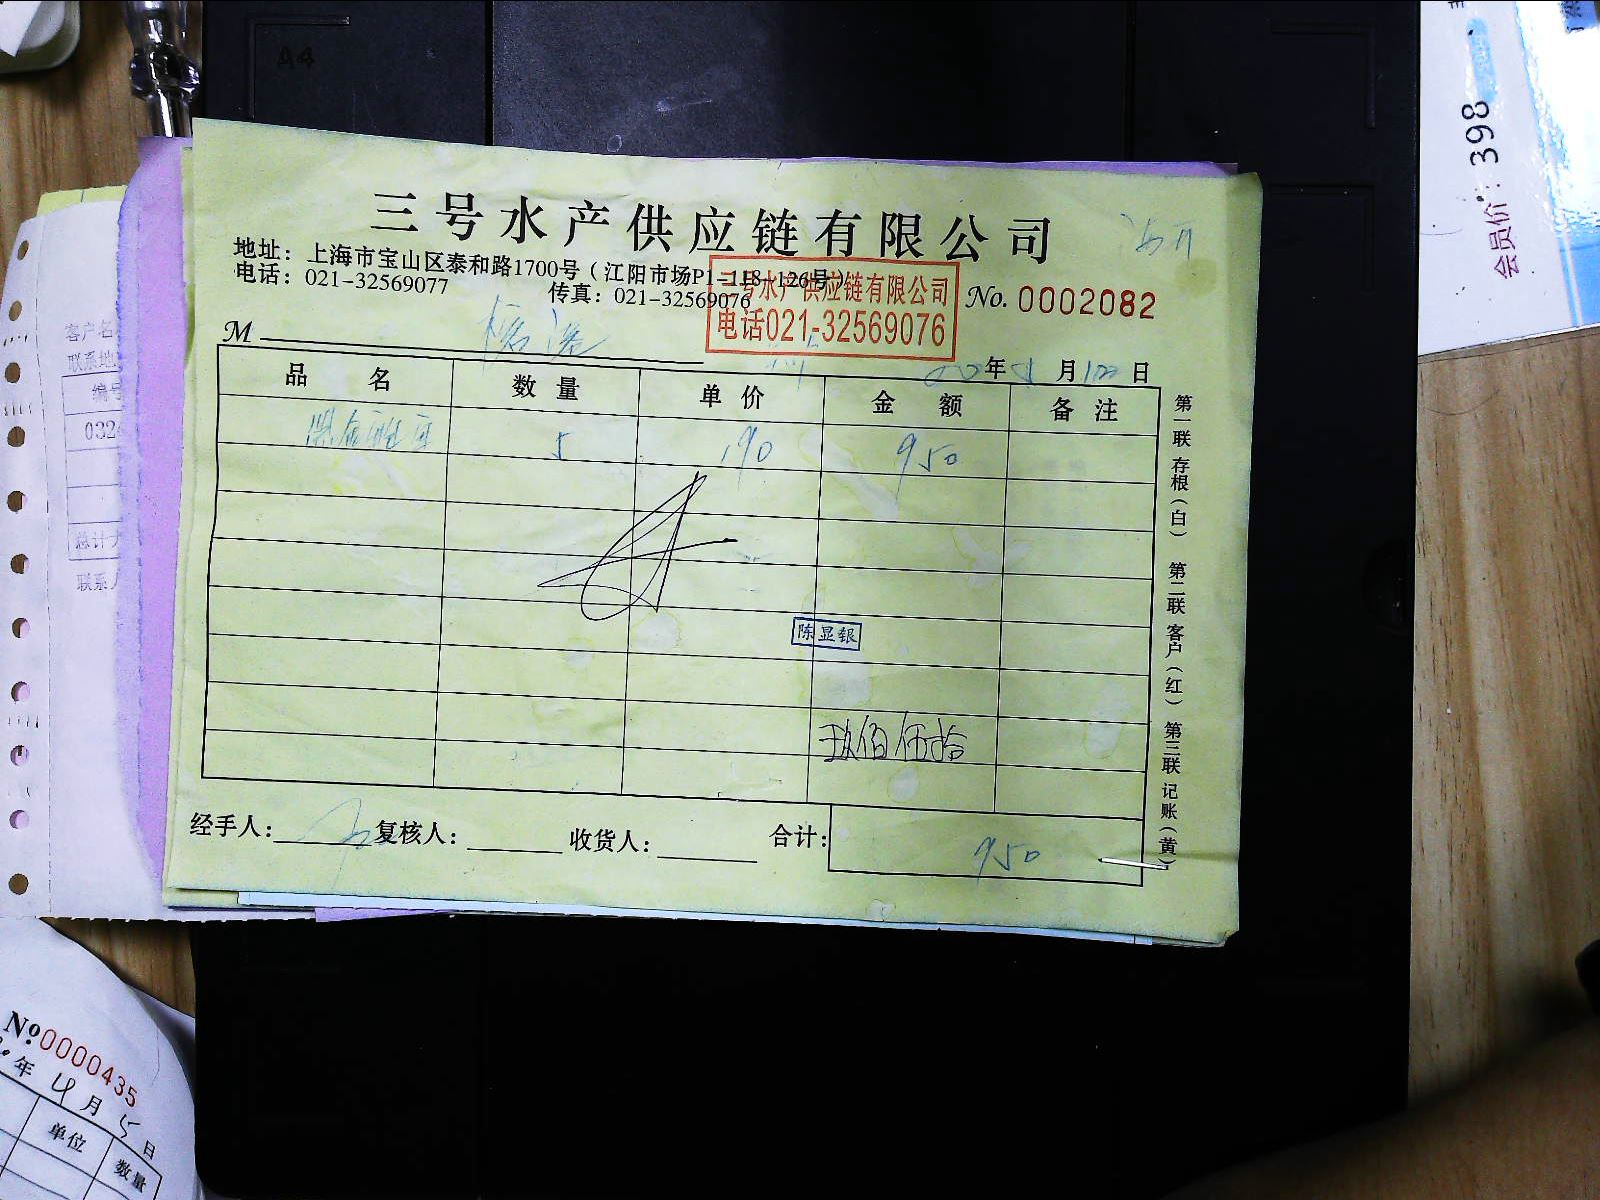 A4
会员价: 398
三号水产供应链有限公司
地址：上海市宝山区泰和路1700号（江阳市场P1-118-126号）
电话：021-32569077 传真：021-32569076
三号水产供应链有限公司
电话021-32569076
No. 0002082
M
年 月 日
品名 数量 单价 金额 备注
5 190 950
陈显银
玖佰伍拾
经手人： 复核人： 收货人： 合计： 950
第一联存根（白） 第二联客户（红） 第三联记账（黄）
客户名
联系地
编号
032
总计大
联系人
No 0000435
年 4月 5日
单位 数量